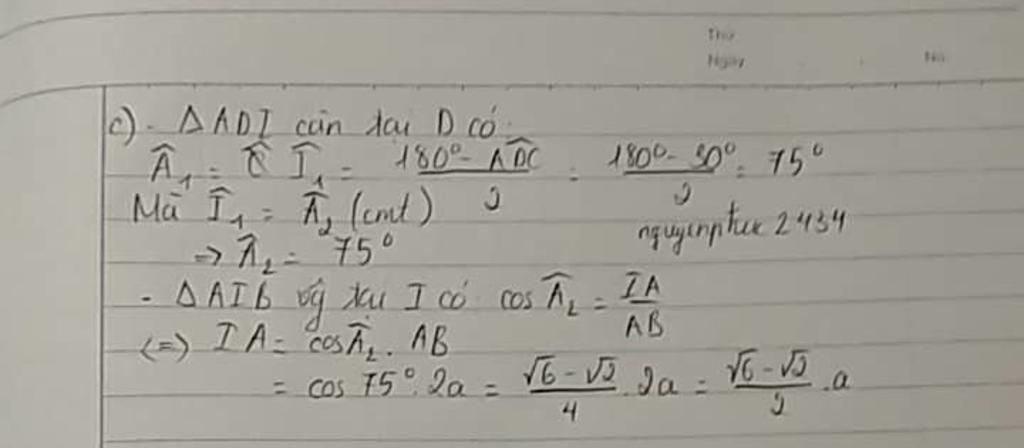 Thứ
Ngày No
c) - ΔADI cân tại D có
Â₁ = Î₁ = (180° - ADC)/2 = (180° - 30°)/2 = 75°
Mà Î₁ = Â₂ (cmt)
nguyenphuc2434
=> Â₂ = 75°
- ΔAIB vg tại I có cos Â₂ = IA/AB
<=> IA = cosÂ₂ . AB
= cos 75° . 2a = (√6 - √2)/4 . 2a = (√6 - √2)/2 . a